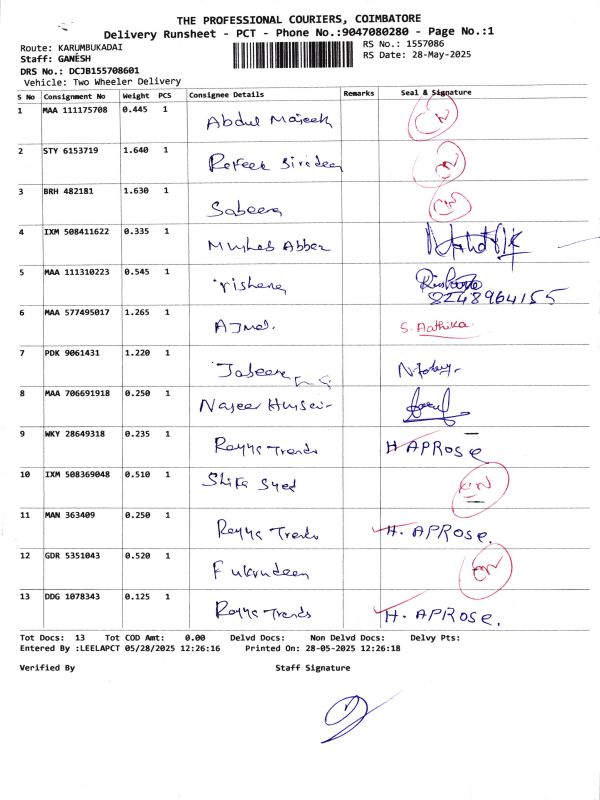 THE PROFESSIONAL COURIERS, COIMBATORE
Delivery Runsheet - PCT - Phone No.:9047080280 - Page No.:1
Route: KARUMBUKADAI
RS No.: 1557086
Staff: GANESH
RS Date: 28-May-2025
DRS No.: DCJB155708601
Vehicle: Two Wheeler Delivery
S No Consignment No Weight PCS Consignee Details Remarks Seal & Signature
1 MAA 111175708 0.445 1 Abdul Majeek CN
2 STY 6153719 1.640 1 Refeek Sirideen CN
3 BRH 482181 1.630 1 Sabeera CN
4 IXM 508411622 0.335 1 Mujheb Abber
5 MAA 111310223 0.545 1 rishana
8248964155
6 MAA 577495017 1.265 1 Ajmal S. Aathika
7 PDK 9061431 1.220 1 Jabeera
8 MAA 706691918 0.250 1 Nazeer Hussain
9 WKY 28649318 0.235 1 Rayya Trends H APROSE
10 IXM 508369048 0.510 1 Shifa Syed CN
11 MAN 363409 0.250 1 Rayya Trends H. APROSE.
12 GDR 5351043 0.520 1 Fukrudeen CN
13 DDG 1078343 0.125 1 Rayya Trends H. APROSE.
Tot Docs: 13 Tot COD Amt: 0.00 Delvd Docs: Non Delvd Docs: Delvy Pts:
Entered By :LEELAPCT 05/28/2025 12:26:16 Printed On: 28-05-2025 12:26:18
Verified By Staff Signature